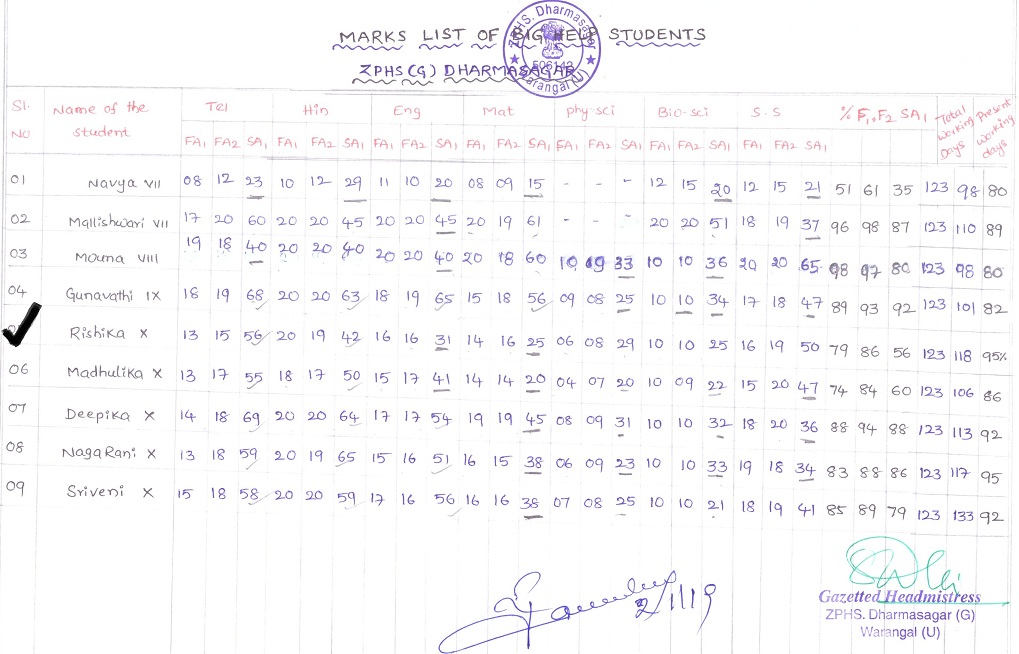 MARKS LIST OF BIG HELP STUDENTS
ZPHS (G) DHARMASAGAR
ZPHS. Dharmasagar
506142
Warangal (U)
Sl. No Name of the student Tel Hin Eng Mat phy-sci Bio-sci S.S % F1, F2 SA1 Total Working Days Present working days
FA1 FA2 SA1 FA1 FA2 SA1 FA1 FA2 SA1 FA1 FA2 SA1 FA1 FA2 SA1 FA1 FA2 SA1 FA1 FA2 SA1
01 Navya VII 08 12 23 10 12 29 11 10 20 08 09 15 - - - 12 15 20 12 15 21 51 61 35 123 98 80
02 Mallishwari VII 17 20 60 20 20 45 20 20 45 20 19 61 - - - 20 20 51 18 19 37 96 98 87 123 110 89
03 Mouna VIII 19 18 40 20 20 40 20 20 40 20 18 60 10 09 33 10 10 36 20 20 65 98 97 80 123 98 80
04 Gunavathi IX 18 19 68 20 20 63 18 19 65 15 18 56 09 08 25 10 10 34 17 18 47 89 93 92 123 101 82
Rishika X 13 15 56 20 19 42 16 16 31 14 16 25 06 08 29 10 10 25 16 19 50 79 86 56 123 118 95%
06 Madhulika X 13 17 55 18 17 50 15 17 41 14 14 20 04 07 20 10 09 22 15 20 47 74 84 60 123 106 86
07 Deepika X 14 18 69 20 20 64 17 17 54 19 19 45 08 09 31 10 10 32 18 20 36 88 94 88 123 113 92
08 NagaRani X 13 18 59 20 19 65 15 16 51 16 15 38 06 09 23 10 10 33 19 18 34 83 88 86 123 117 95
09 Sriveni X 15 18 58 20 20 59 17 16 56 16 16 38 07 08 25 10 10 21 18 19 41 85 89 79 123 133 92
2/1/19
Gazetted Headmistress
ZPHS. Dharmasagar (G)
Warangal (U)